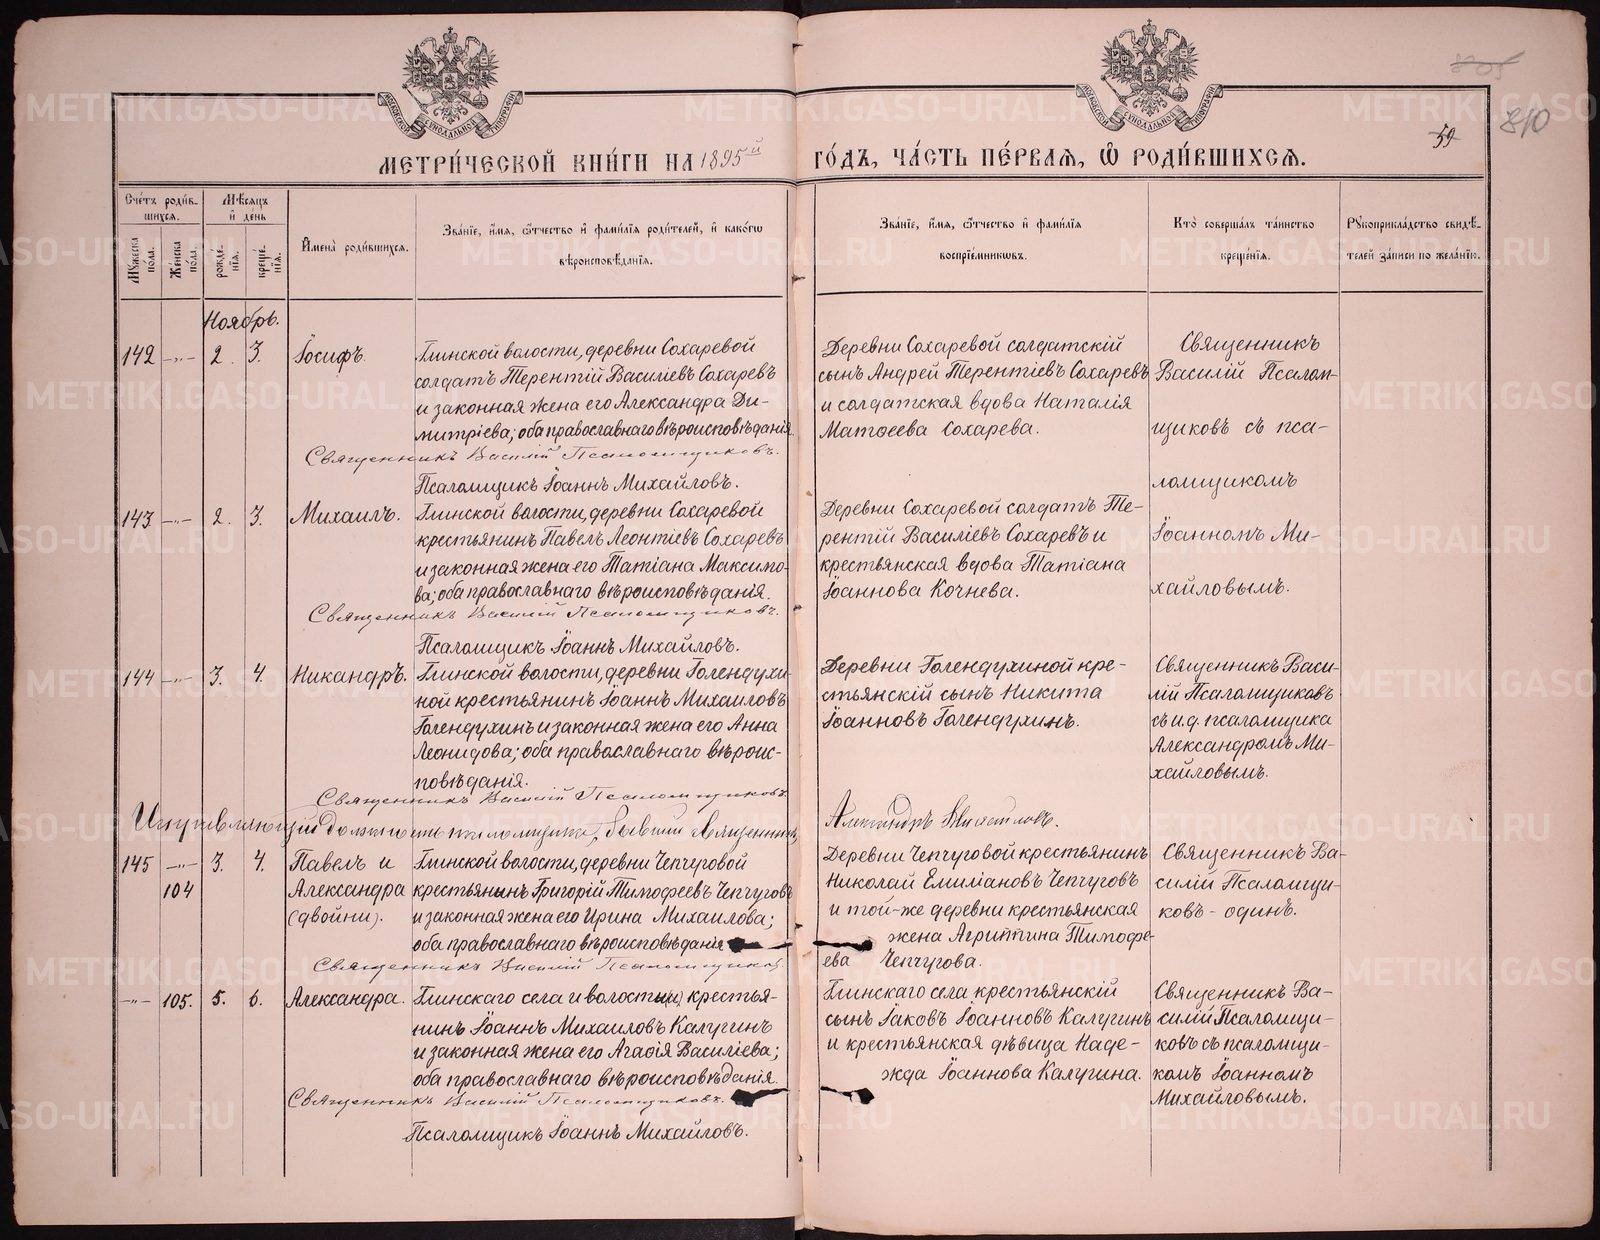 МЕТРИ́ЧЕСКОЙ КНИ́ГИ НА 1895й ГО́ДЪ, ЧА́СТЬ ПЕ́РВАЯ, Ѽ РОДИ́ВШИХСЯ.
59
810
Сче́тъ роди́в-
шихся.
Мѣ́сяцъ
и҆ де́нь
Му́жеска по́ла.
Же́нска по́ла.
рожде́-
нїя.
креще́-
нїя.
И҆мена̀ роди́вшихся.
Зва́нїе, и҆́мя, ѻ҆́тчество и҆ фами́лїя роди́телей, и҆ како́гѡ
вѣроисповѣ́данїя.
Зва́нїе, и҆́мя, ѻ҆́тчество и҆ фами́лїя
воспрїе́мникѡвъ.
Кто̀ соверша́лъ та́инство
креще́нїя.
Рꙋкоприкла́дство свидѣ́-
телей за́писи по жела́нїю.
Ноябрь.
142 -"- 2. 3. Іосифъ.
Глинской волости, деревни Сохаревой
солдатъ Терентій Василіевъ Сохаревъ
и законная жена его Александра Ди-
митріева; оба православнаго вѣроисповѣданія.
Священникъ Василій Псаломщиковъ.
Псаломщикъ Іоаннъ Михайловъ.
Деревни Сохаревой солдатскій
сынъ Андрей Терентіевъ Сохаревъ
и солдатская вдова Наталія
Матѳеева Сохарева.
Священникъ
Василій Псалом-
щиковъ съ пса-
ломщикомъ
Іоанномъ Ми-
хайловымъ.
143 -"- 2. 3. Михаилъ.
Глинской волости, деревни Сохаревой
крестьянинъ Павелъ Леонтіевъ Сохаревъ
и законная жена его Татіана Максимо-
ва; оба православнаго вѣроисповѣданія.
Священникъ Василій Псаломщиковъ.
Псаломщикъ Іоаннъ Михайловъ.
Деревни Сохаревой солдатъ Те-
рентій Василіевъ Сохаревъ и
крестьянская вдова Татіана
Іоаннова Кочнева.
144 -"- 3. 4. Никандръ.
Глинской волости, деревни Голендухи
ной крестьянинъ Іоаннъ Михаиловъ
Голендухинъ и законная жена его Анна
Леонидова; оба православнаго вѣроис-
повѣданія.
Священникъ Василій Псаломщиковъ.
Исправляющій должность псаломщика, бывшій священникъ, Александръ Михайловъ.
Деревни Голендухиной кре-
стьянскій сынъ Никита
Іоанновъ Голендухинъ.
Священникъ Васи-
лій Псаломщиковъ
съ и.д. псаломщика
Александромъ Ми-
хайловымъ.
145 -"- 3. 4. Павелъ и
104 Александра
(двойни).
Глинской волости, деревни Чепчуговой
крестьянынъ Григорій Тимофеевъ Чепчуговъ
и законная жена его Ирина Михаилова;
оба православнаго вѣроисповѣданія
Священникъ Василій Псаломщиковъ
Деревни Чепчуговой крестьянинъ
Николай Емиліановъ Чепчуговъ
и той-же деревни крестьянская
жена Агриппина Тимофе-
ева Чепчугова.
Священникъ Ва-
силій Псаломщи-
ковъ - одинъ.
-"- 105. 5. 6. Александра.
Глинскаго села и волости крестья-
нинъ Іоаннъ Михаиловъ Калугинъ
и законная жена его Агаѳія Василіева;
оба православнаго вѣроисповѣданія.
Священникъ Василій Псаломщиковъ.
Псаломщикъ Іоаннъ Михайловъ.
Глинскаго села крестьянскій
сынъ Іаковъ Іоанновъ Калугинъ
и крестьянская дѣвица Наде-
жда Іоаннова Калугина.
Священникъ Ва-
силій Псаломщи-
ковъ съ псаломщи-
комъ Іоанномъ
Михайловымъ.